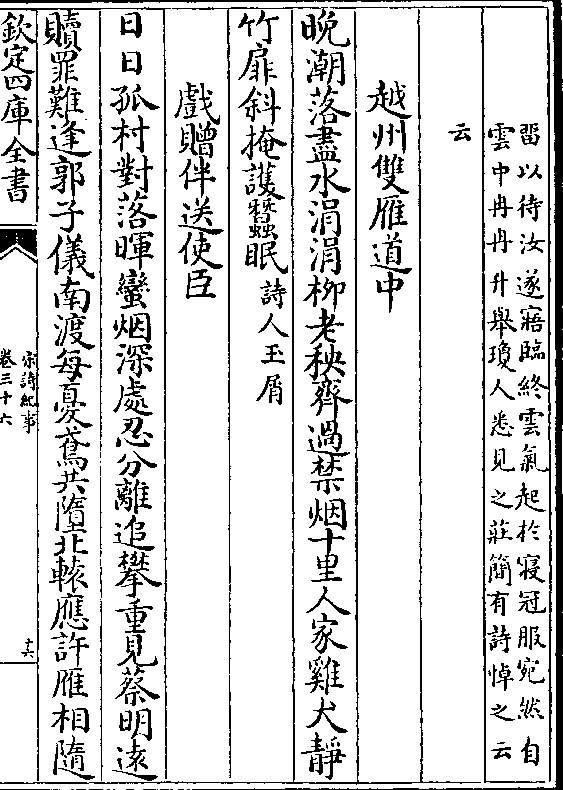 畱以待汝遂寤臨終雲氣起於寢冠服宛然自
雲中冉冉升舉瓊人悉見之莊簡有詩悼之云
云
越州雙雁道中
晚潮落盡水涓涓柳老秧齊過禁烟十里人家雞犬靜
竹扉斜掩護蠶眠詩人玉屑
戲贈伴送使臣
日日孤村對落暉蠻烟深處忍分離追攀重見蔡明遠
贖罪難逢郭子儀南渡每憂鳶共墮北轅應許雁相隨
欽定四庫全書
宋詩紀事
卷三十六